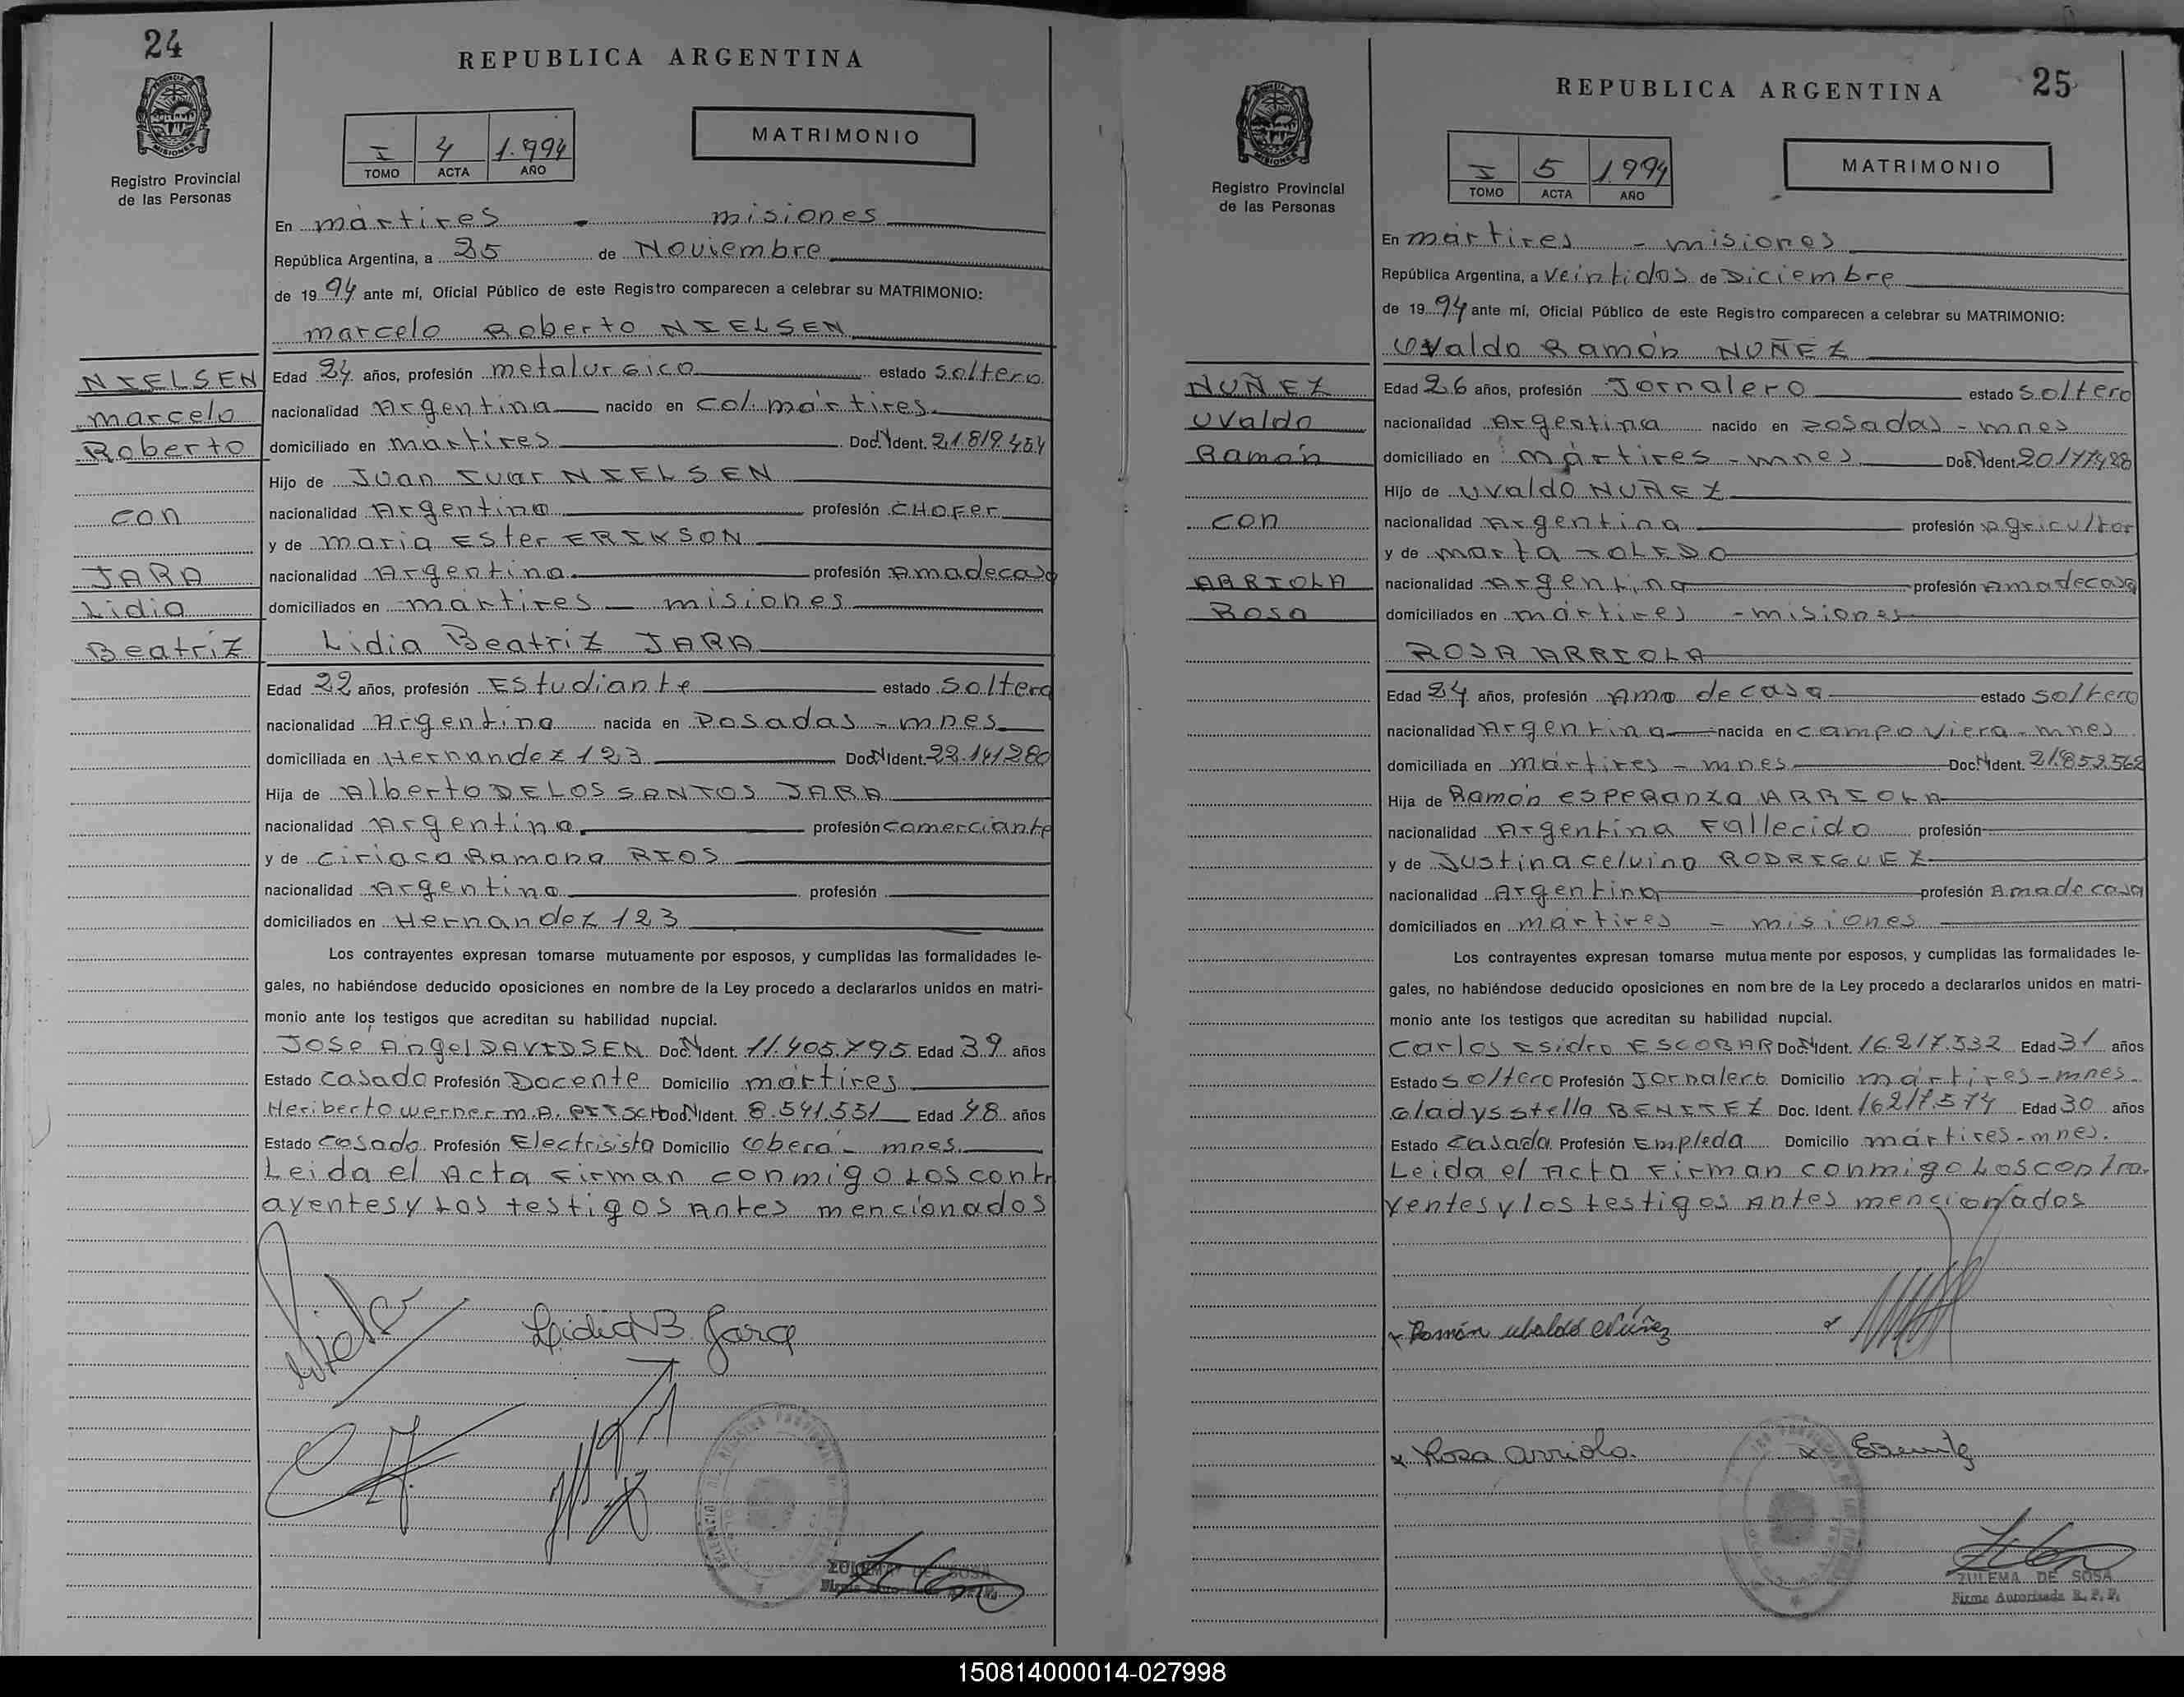 24
REPUBLICA ARGENTINA
MISIONES
Registro Provincial
de las Personas
I 4 1.994
TOMO ACTA AÑO
MATRIMONIO
En mártires - misiones
República Argentina, a 25 de Noviembre
de 1994 ante mí, Oficial Público de este Registro comparecen a celebrar su MATRIMONIO:
marcelo Roberto NIELSEN
NIELSEN
marcelo
Roberto
con
JARA
Lidia
Beatriz
Edad 24 años, profesión metalurgico estado soltero
nacionalidad Argentina nacido en Col. mártires
domiciliado en martires Doc. N Ident. 21.819.454
Hijo de Juan Ivar NIELSEN
nacionalidad Argentina profesión CHOFer
y de maria Ester ERIKSON
nacionalidad Argentina profesión Amadecasa
domiciliados en mártires - misiones
Lidia Beatriz JARA
Edad 22 años, profesión Estudiante estado Soltera
nacionalidad Argentina nacida en Posadas - mnes
domiciliada en Hernandez 123 Doc. N Ident. 22.141.280
Hija de Alberto DE LOS SANTOS JARA
nacionalidad Argentina profesión comerciante
y de Ciriaca Ramona RIOS
nacionalidad Argentina profesión
domiciliados en Hernandez 123
Los contrayentes expresan tomarse mutuamente por esposos, y cumplidas las formalidades le-
gales, no habiéndose deducido oposiciones en nombre de la Ley procedo a declararlos unidos en matri-
monio ante los testigos que acreditan su habilidad nupcial.
Jose Angel DAVIDSEN Doc. N Ident. 11.405.795 Edad 39 años
Estado Casado Profesión Docente Domicilio mártires
Heriberto werner m.A. Doc. N Ident. 8.541.551 Edad 48 años
Estado Casado Profesión Electrisista Domicilio Oberá - mnes.
Leida el Acta Firman conmigo Los contr
ayentes y Los testigos Antes mencionados
Lidia B. Jara
ZULEMA DE SOSA
25
REPUBLICA ARGENTINA
MISIONES
Registro Provincial
de las Personas
I 5 1.994
TOMO ACTA AÑO
MATRIMONIO
En mártires - misiones
República Argentina, a Veintidos de Diciembre
de 1994 ante mí, Oficial Público de este Registro comparecen a celebrar su MATRIMONIO:
Uvaldo Ramón NUÑEZ
NUÑEZ
Uvaldo
Ramón
con
ARRIOLA
Rosa
Edad 26 años, profesión Jornalero estado soltero
nacionalidad Argentina nacido en Posadas - mnes
domiciliado en mártires - mnes Doc. N Ident. 20.177.428
Hijo de Uvaldo NUÑEZ
nacionalidad Argentina profesión Agricultor
y de marta TOLEDO
nacionalidad Argentina profesión Amadecasa
domiciliados en mártires - misiones
ROSA ARRIOLA
Edad 24 años, profesión Ama de casa estado soltera
nacionalidad Argentina nacida en campo Viera - mnes
domiciliada en mártires - mnes Doc. N Ident. 21.852.562
Hija de Ramón esperanza ARRIOLA
nacionalidad Argentina Fallecido profesión
y de Justina celvina RODRIGUEZ
nacionalidad Argentina profesión Amadecasa
domiciliados en mártires - misiones
Los contrayentes expresan tomarse mutuamente por esposos, y cumplidas las formalidades le-
gales, no habiéndose deducido oposiciones en nombre de la Ley procedo a declararlos unidos en matri-
monio ante los testigos que acreditan su habilidad nupcial.
Carlos Esidro ESCOBAR Doc. N Ident. 16.217.532 Edad 31 años
Estado soltero Profesión Jornalero Domicilio mártires - mnes
Gladys Stella BENITEZ Doc. Ident. 16217.574 Edad 30 años
Estado Casada Profesión Empleda Domicilio mártires - mnes.
Leida el Acta Firman conmigo Los contra
yentes y los testigos Antes mencionados
x Ramón Ubaldo Núñez x
x Rosa Arriola. x
ZULEMA DE SOSA
Firma Autorizada R. P. P.
150814000014-027998